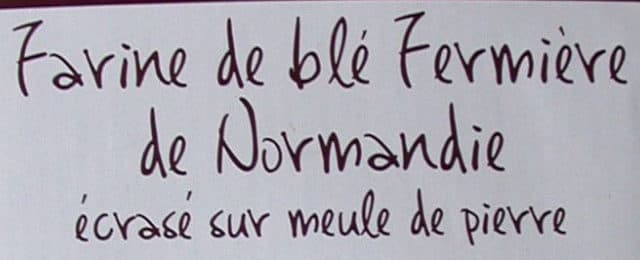 Farine de blé Fermière
de Normandie
écrasé sur meule de pierre